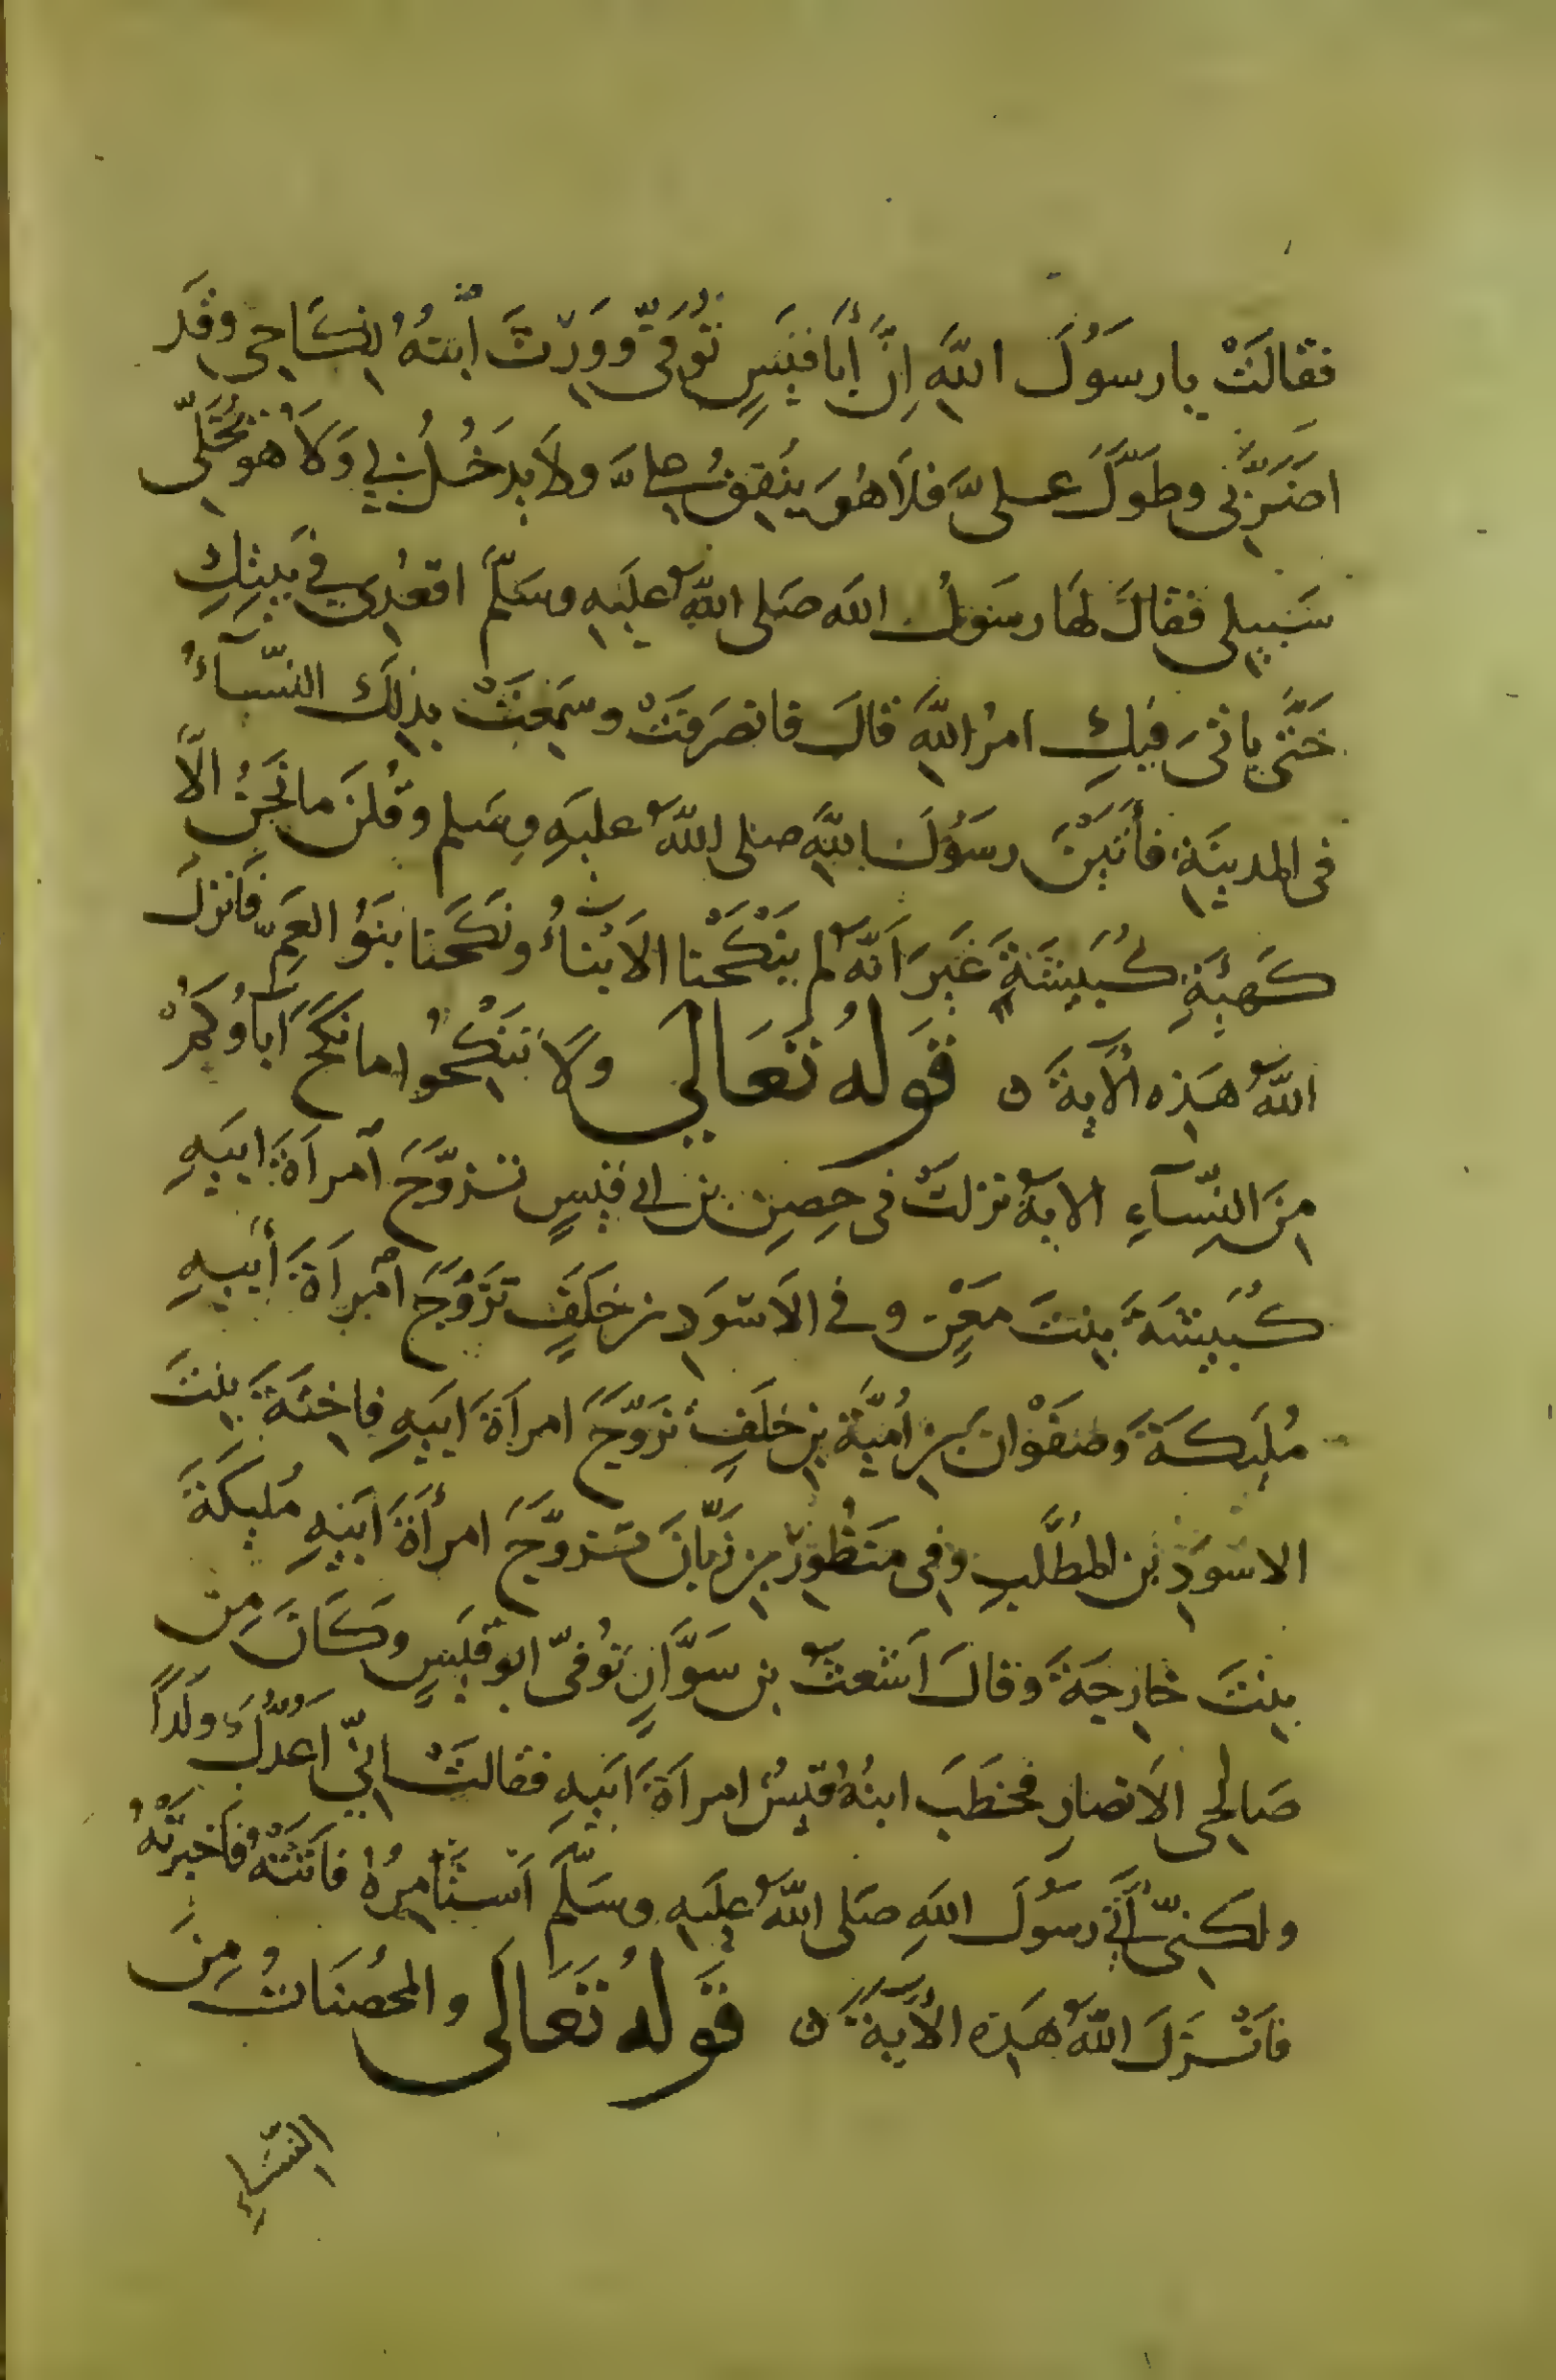 فقالَتْ يا رسَوُلَ اللَّهِ اِنَّ أَبَا قَيسٍ تُوُفّىَ ووَرِثَ اَبنهُ انكَاحِى وقَد
اضَرَّ بى وطَوَّلَ عَلىَّ فَلاَ هُوَ ينفِقُ علىَّ ولاَ يَدخُلُ بِي وَلاَ هوَ يُخَلِّى
سَبيِلى فَقالَ لهَا رسَولُ اللَه صَلى اللَّهُ عليَهِ وسَلمّ اقعُدِى فِي بَيتِكِ
حَتَّى ياتىَ فيكِ امرُ اللَّهِ قالَ فانصَرَفَتْ وسَمِعَتْ بِذلِكَ النسّآءُ
فى المدينَةِ فأَتَيَنَ رسَوُلَ اللَّهِ صلى اللَّهُ عليهِ وسَلم وقُلنَ ما نَحنُ الَّا
كَهيئَةِ كُبَيشَةٍ غَيرَ اَنَّهُ لم يَنكَحْنا الاَبناءُ ونَكَحَنا بَنوُ العَمِّ فَانزلَ
اللَّهُ هَذِه الآيةَ ه قَولهُ تَعَالَى ولاَ تَنكِحُوا ما نَكحَ آبَاؤُكمُ
مِنَ النِسّآءِ الايةُ نزلَتْ فى حِصِن بن ابى قيسٍ تَزوَّجَ اَمراَةَ ابيَهِ
كُبَيشَةَ بِنتَ مَعْنٍ وفى الاَسوَدِ بن خَلَفٍ تَزَوَّجَ امراَةَ أَبيهِ
مُليَكةَ وَصَفْوان بنِ اُميَّة بنِ خَلَفٍ تزوَّجَ امراَةَ اَبيَهِ فاخِتَةَ بِنتَ
الاسوَدِ بن المُطَّلبِ وفى مَنظُورِ بنِ زَبّانَ تَزوَّجَ امرأَةَ اَبيَهِ مُليكَةَ
بِنتَ خارِجَةَ وقالَ اَشعَثُ بن سَوَّارٍ تُوُفىّ ابو قيَسٍ وَكَانَ مِن
صَالِحى الاَنصارِ فخَطبَ ابنهُ قَيسُ امراَةَ اَبيَهِ فقالَتْ انيِّ اَعدُّكَ ولَدًا
ولكِنىّ اٰتي رسوُلَ اللَهِ صَلى اللَّهُ عليَهِ وسَلَّمَ اَستَأمِرُهُ فاتَتْهُ فاَخبرتَهُ
فاَنْزَلَ اللَّهُ هَذِه الآيَةَ ه قَولهُ تَعَالَى والمحُصَنَاتُ مِنَ
النسَّاءِ